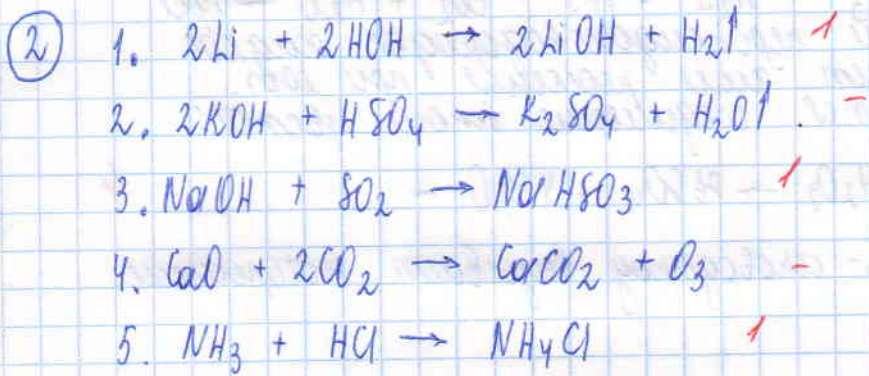 ② 1. 2Li + 2HOH → 2LiOH + H₂↑ 1
2. 2KOH + HSO₄ → K₂SO₄ + H₂O↑ . -
3. NaOH + SO₂ → NaHSO₃ 1
4. CaO + 2CO₂ → CaCO₂ + O₃ -
5. NH₃ + HCl → NH₄Cl 1